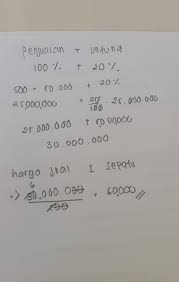 Penjualan + Untung
100 % + 20 %
500 × 50.000 + 20 %
25.000,000 + 20/100 . 25.000.000
25.000.000 + 5000000
30.000.000
harga jual 1 sepatu
6
30.000.000 / 500 = 60.000 //